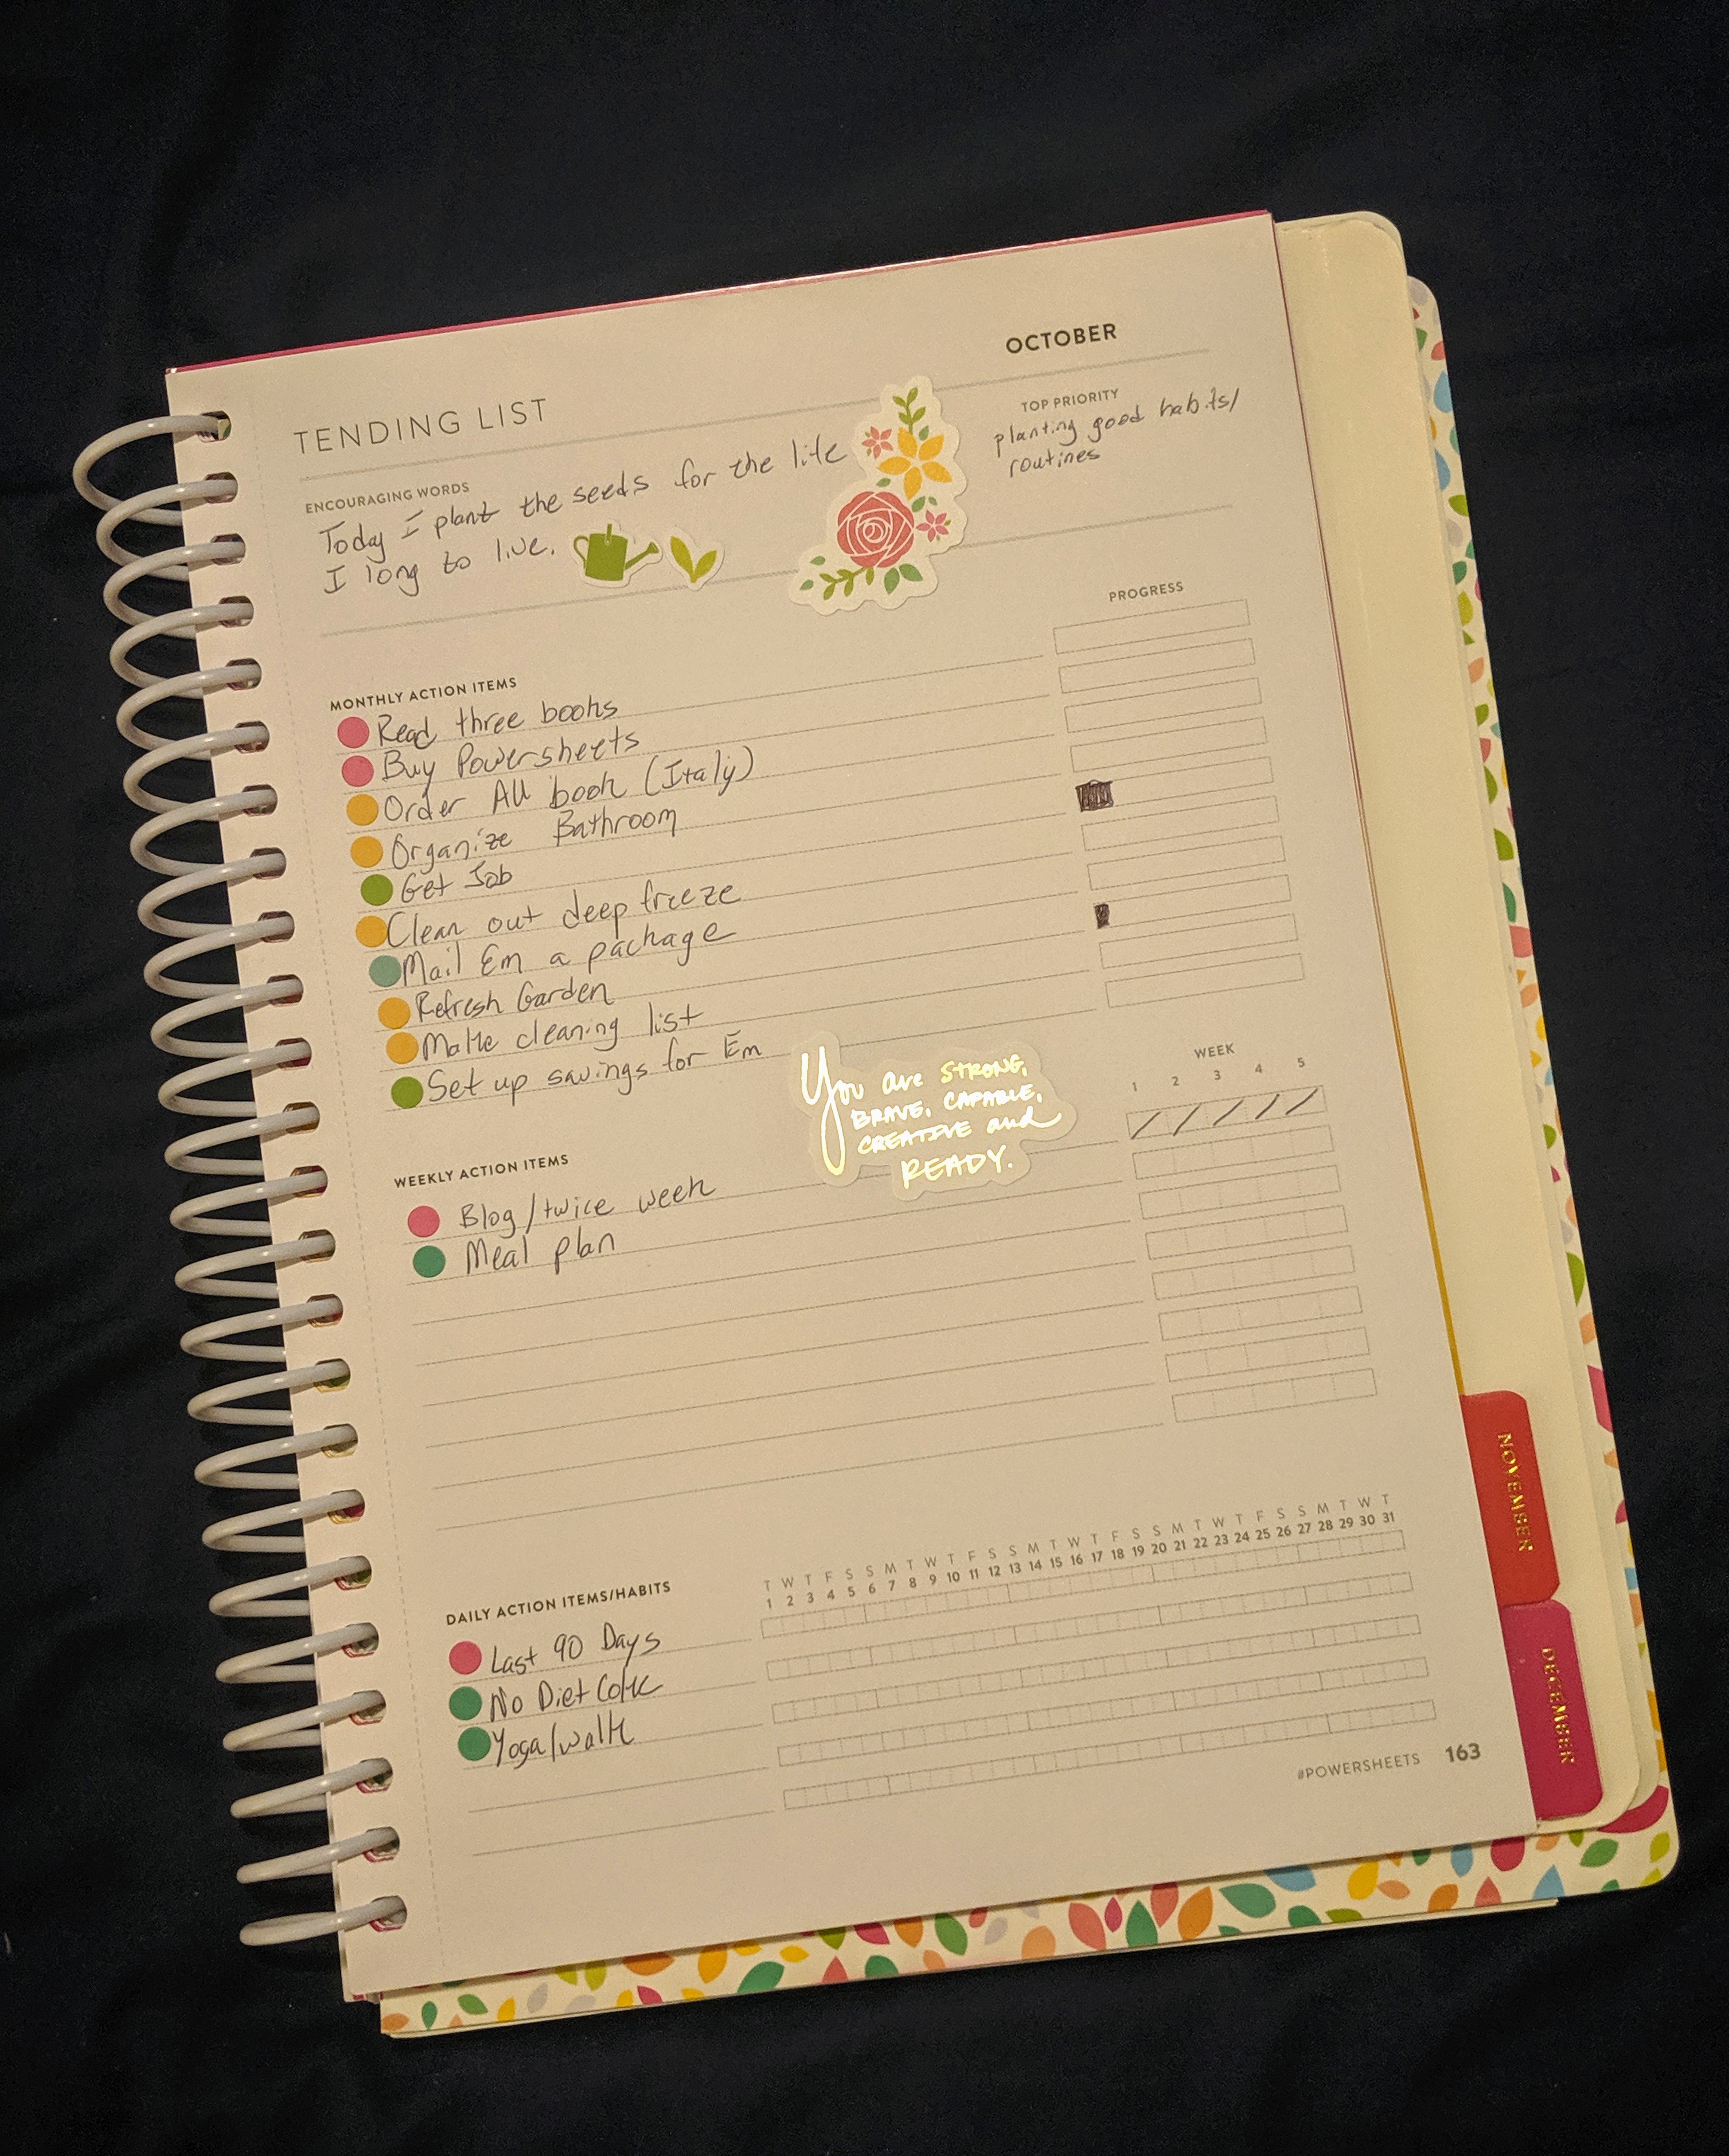 OCTOBER
TENDING LIST
ENCOURAGING WORDS
Today I plant the seeds for the life
I long to live.
TOP PRIORITY
planting good habits/
routines
MONTHLY ACTION ITEMS
PROGRESS
Read three books
Buy Powersheets
Order AU book (Italy)
Organize Bathroom
Get Job
Clean out deep freeze
Mail Em a package
Refresh Garden
Make cleaning list
Set up savings for Em
You are STRONG,
BRAVE, CAPABLE,
CREATIVE and
READY.
WEEKLY ACTION ITEMS
WEEK
1 2 3 4 5
Blog/twice week
Meal plan
DAILY ACTION ITEMS/HABITS
T W T F S S M T W T F S S M T W T F S S M T W T F S S M T W T
1 2 3 4 5 6 7 8 9 10 11 12 13 14 15 16 17 18 19 20 21 22 23 24 25 26 27 28 29 30 31
Last 90 Days
No Diet Coke
Yoga/walk
#POWERSHEETS 163
NOVEMBER
DECEMBER